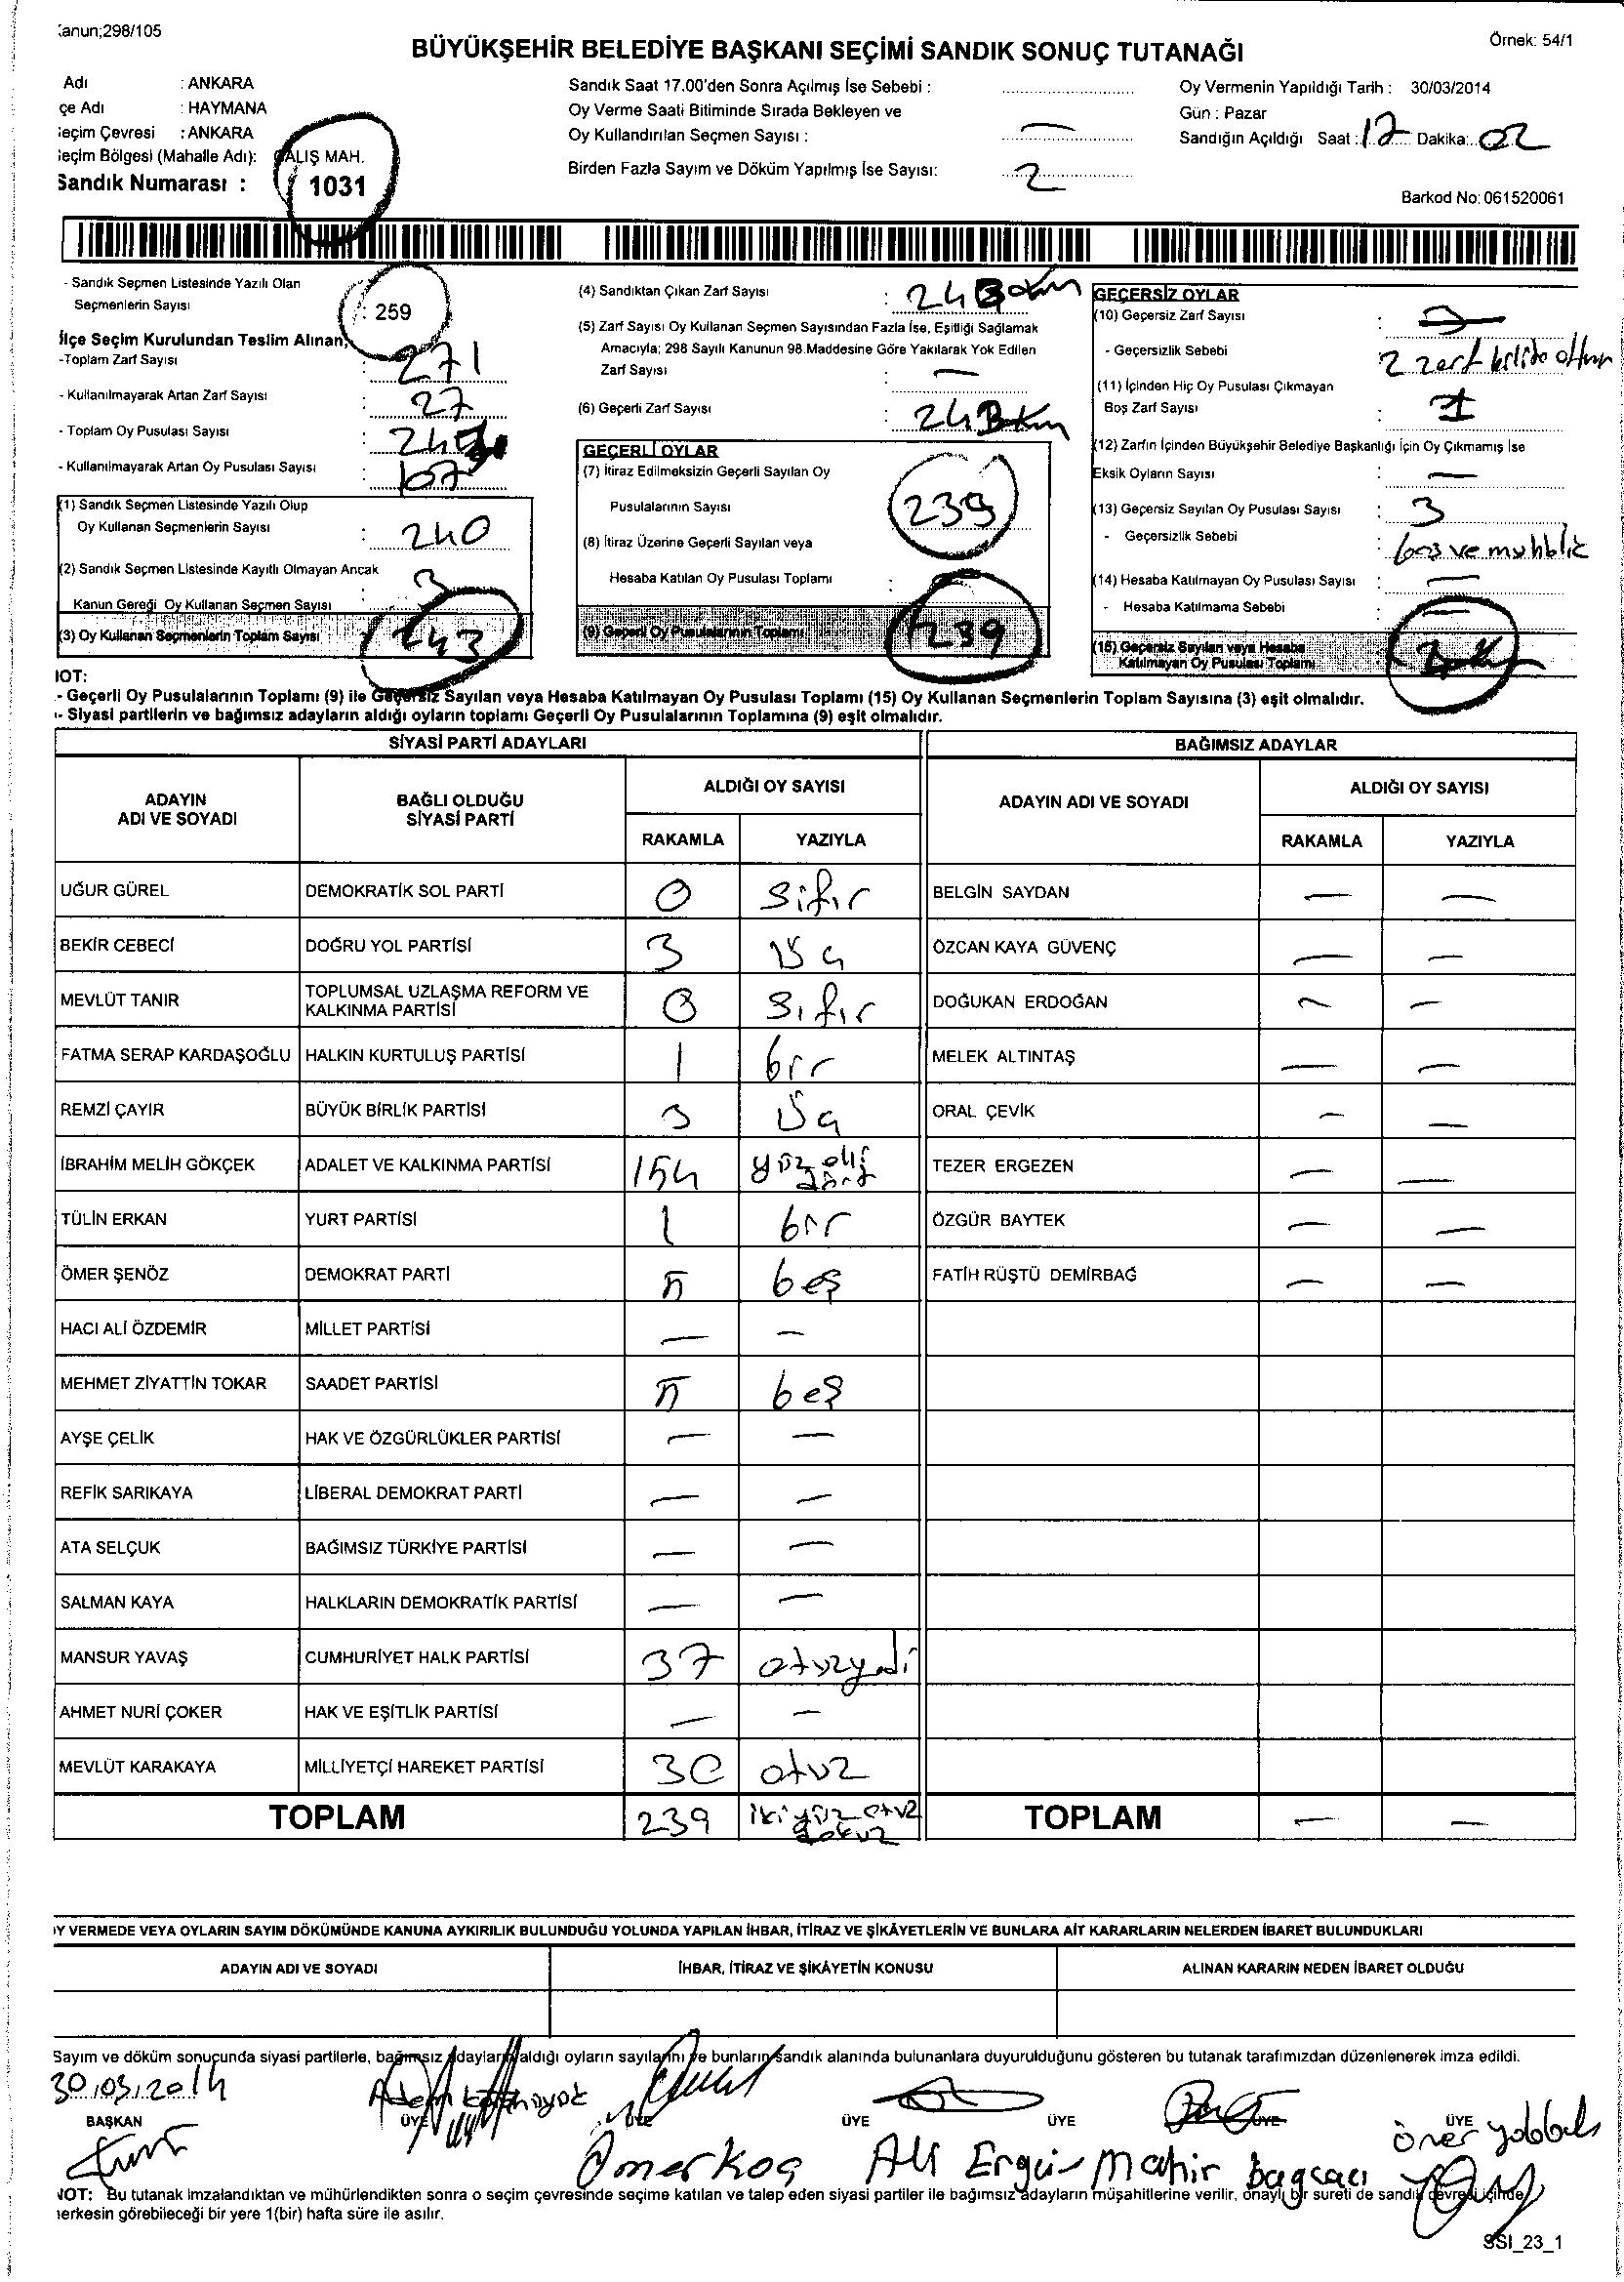 Kanun;298/105
Örnek: 54/1
BÜYÜKŞEHİR BELEDİYE BAŞKANI SEÇİMİ SANDIK SONUÇ TUTANAĞI
Adı : ANKARA
çe Adı : HAYMANA
eçim Çevresi : ANKARA
eçim Bölgesi (Mahalle Adı): ÇALIŞ MAH.
Sandık Numarası : 1031
Sandık Saat 17.00'den Sonra Açılmış İse Sebebi :
Oy Verme Saati Bitiminde Sırada Bekleyen ve
Oy Kullandırılan Seçmen Sayısı : —
Birden Fazla Sayım ve Döküm Yapılmış İse Sayısı: 2
Oy Vermenin Yapıldığı Tarih : 30/03/2014
Gün : Pazar
Sandığın Açıldığı Saat : 17 Dakika: 02
Barkod No: 061520061
- Sandık Seçmen Listesinde Yazılı Olan
Seçmenlerin Sayısı : 259
İlçe Seçim Kurulundan Teslim Alınan;
-Toplam Zarf Sayısı : 271
- Kullanılmayarak Artan Zarf Sayısı : 27
- Toplam Oy Pusulası Sayısı :
- Kullanılmayarak Artan Oy Pusulası Sayısı : 107
(1) Sandık Seçmen Listesinde Yazılı Olup
Oy Kullanan Seçmenlerin Sayısı : 240
(2) Sandık Seçmen Listesinde Kayıtlı Olmayan Ancak
Kanun Gereği Oy Kullanan Seçmen Sayısı : 3
(3) Oy Kullanan Seçmenlerin Toplam Sayısı 243
(4) Sandıktan Çıkan Zarf Sayısı : 243
(5) Zarf Sayısı Oy Kullanan Seçmen Sayısından Fazla İse, Eşitliği Sağlamak
Amacıyla; 298 Sayılı Kanunun 98.Maddesine Göre Yakılarak Yok Edilen
Zarf Sayısı : —
(6) Geçerli Zarf Sayısı : 243
GEÇERLİ OYLAR
(7) İtiraz Edilmeksizin Geçerli Sayılan Oy
Pusulalarının Sayısı 239
(8) İtiraz Üzerine Geçerli Sayılan veya
Hesaba Katılan Oy Pusulası Toplamı : —
(9) Geçerli Oy Pusulalarının Toplamı 239
GEÇERSİZ OYLAR
(10) Geçersiz Zarf Sayısı :
- Geçersizlik Sebebi 2 zarf
(11) İçinden Hiç Oy Pusulası Çıkmayan
Boş Zarf Sayısı : 1
(12) Zarfın İçinden Büyükşehir Belediye Başkanlığı İçin Oy Çıkmamış İse
Eksik Oyların Sayısı —
(13) Geçersiz Sayılan Oy Pusulası Sayısı : 3
- Geçersizlik Sebebi : boş ve
(14) Hesaba Katılmayan Oy Pusulası Sayısı : —
- Hesaba Katılmama Sebebi : —
(15) Geçersiz Sayılan veya Hesaba
Katılmayan Oy Pusulası Toplamı
NOT:
- Geçerli Oy Pusulalarının Toplamı (9) ile Geçersiz Sayılan veya Hesaba Katılmayan Oy Pusulası Toplamı (15) Oy Kullanan Seçmenlerin Toplam Sayısına (3) eşit olmalıdır.
- Siyasi partilerin ve bağımsız adayların aldığı oyların toplamı Geçerli Oy Pusulalarının Toplamına (9) eşit olmalıdır.
SİYASİ PARTİ ADAYLARI BAĞIMSIZ ADAYLAR
ADAYIN ADI VE SOYADI BAĞLI OLDUĞU SİYASİ PARTİ ALDIĞI OY SAYISI ADAYIN ADI VE SOYADI ALDIĞI OY SAYISI
RAKAMLA YAZIYLA RAKAMLA YAZIYLA
UĞUR GÜREL DEMOKRATİK SOL PARTİ 0 Sıfır BELGİN SAYDAN — —
BEKİR CEBECİ DOĞRU YOL PARTİSİ 3 üç ÖZCAN KAYA GÜVENÇ — —
MEVLÜT TANIR TOPLUMSAL UZLAŞMA REFORM VE KALKINMA PARTİSİ 0 Sıfır DOĞUKAN ERDOĞAN — —
FATMA SERAP KARDAŞOĞLU HALKIN KURTULUŞ PARTİSİ 1 bir MELEK ALTINTAŞ — —
REMZİ ÇAYIR BÜYÜK BİRLİK PARTİSİ 3 üç ORAL ÇEVİK — —
İBRAHİM MELİH GÖKÇEK ADALET VE KALKINMA PARTİSİ 154 yüz elli dört TEZER ERGEZEN — —
TÜLİN ERKAN YURT PARTİSİ 1 bir ÖZGÜR BAYTEK — —
ÖMER ŞENÖZ DEMOKRAT PARTİ 5 beş FATİH RÜŞTÜ DEMİRBAĞ — —
HACI ALİ ÖZDEMİR MİLLET PARTİSİ — —
MEHMET ZİYATTİN TOKAR SAADET PARTİSİ 5 beş
AYŞE ÇELİK HAK VE ÖZGÜRLÜKLER PARTİSİ — —
REFİK SARIKAYA LİBERAL DEMOKRAT PARTİ — —
ATA SELÇUK BAĞIMSIZ TÜRKİYE PARTİSİ — —
SALMAN KAYA HALKLARIN DEMOKRATİK PARTİSİ — —
MANSUR YAVAŞ CUMHURİYET HALK PARTİSİ 37 otuzyedi
AHMET NURİ ÇOKER HAK VE EŞİTLİK PARTİSİ — —
MEVLÜT KARAKAYA MİLLİYETÇİ HAREKET PARTİSİ 30 otuz
TOPLAM 239 iki yüz otuz dokuz TOPLAM — —
OY VERMEDE VEYA OYLARIN SAYIM DÖKÜMÜNDE KANUNA AYKIRILIK BULUNDUĞU YOLUNDA YAPILAN İHBAR, İTİRAZ VE ŞİKÂYETLERİN VE BUNLARA AİT KARARLARIN NELERDEN İBARET BULUNDUKLARI
ADAYIN ADI VE SOYADI İHBAR, İTİRAZ VE ŞİKÂYETİN KONUSU ALINAN KARARIN NEDEN İBARET OLDUĞU
Sayım ve döküm sonucunda siyasi partilerle, bağımsız adayların aldığı oyların sayılarını ve bunların sandık alanında bulunanlara duyurulduğunu gösteren bu tutanak tarafımızdan düzenlenerek imza edildi.
30/03/2014
BAŞKAN ÜYE ÜYE ÜYE ÜYE ÜYE ÜYE
Adem
Ömer Koç Ali Ergün Mahir Bağsacı Öner
NOT: Bu tutanak imzalandıktan ve mühürlendikten sonra o seçim çevresinde seçime katılan ve talep eden siyasi partiler ile bağımsız adayların müşahitlerine verilir, onaylı bir sureti de sandık çevresi içinde
herkesin görebileceği bir yere 1(bir) hafta süre ile asılır.
SSI_23_1